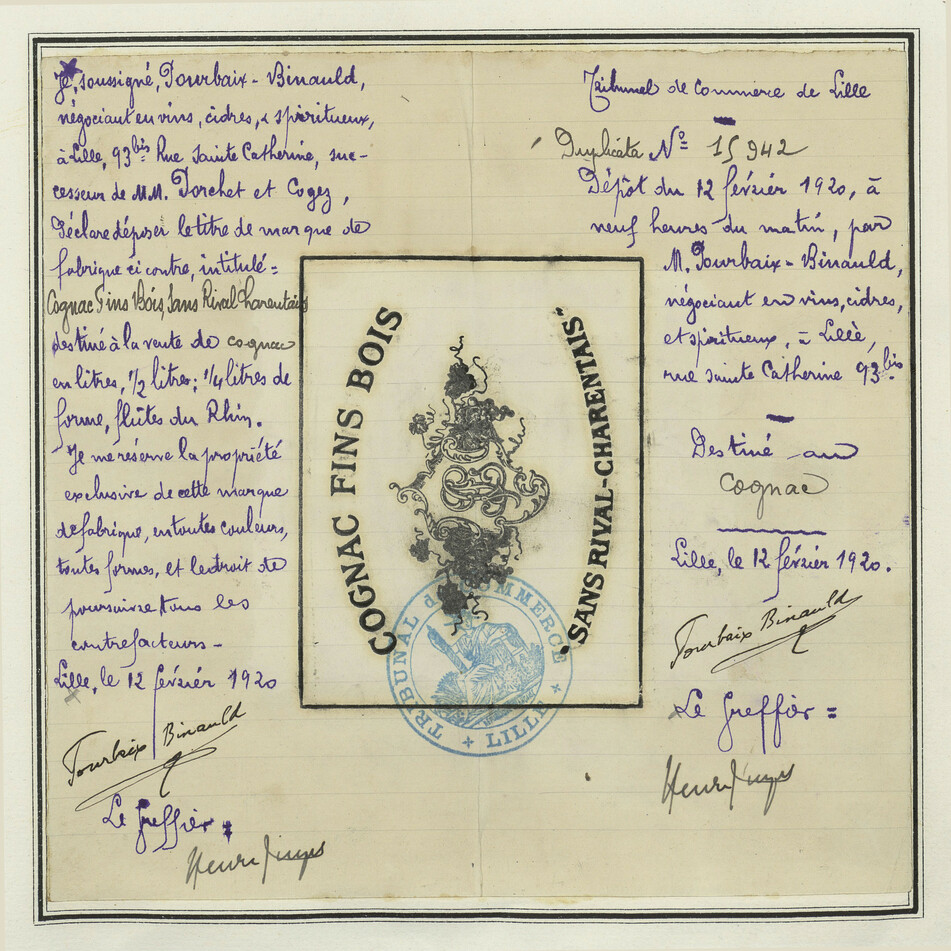 Je, soussigné, Tourbaix-Binauld,
négociant en vins, cidres, & spiritueux,
à Lille, 93 bis Rue Sainte Catherine, suc-
cesseur de MM. Porchet et Cogez,
Déclare déposer le titre de marque de
fabrique ci contre, intitulé =
Cognac Fins Bois, Sans Rival Charentais
destiné à la vente de cognac
en litres, 1/2 litres; 1/4 litres de
forme, flûtes du Rhin.
Je me réserve la propriété
exclusive de cette marque
de fabrique, en toutes couleurs,
toutes formes, et le droit de
poursuivre tous les
contrefacteurs -
Lille, le 12 février 1920
Tourbaix Binauld
Le Greffier :
Henri
COGNAC FINS BOIS
"SANS RIVAL-CHARENTAIS"
TRIBUNAL de COMMERCE
+ LILLE +
Tribunal de Commerce de Lille
Duplicata No 15942
Dépôt du 12 février 1920, à
neuf heures du matin, par
M. Tourbaix-Binauld,
négociant en vins, cidres,
et spiritueux, à Lille,
rue Sainte Catherine 93 bis.
Destiné au
cognac
Lille, le 12 février 1920.
Tourbaix Binauld
Le Greffier =
Henri